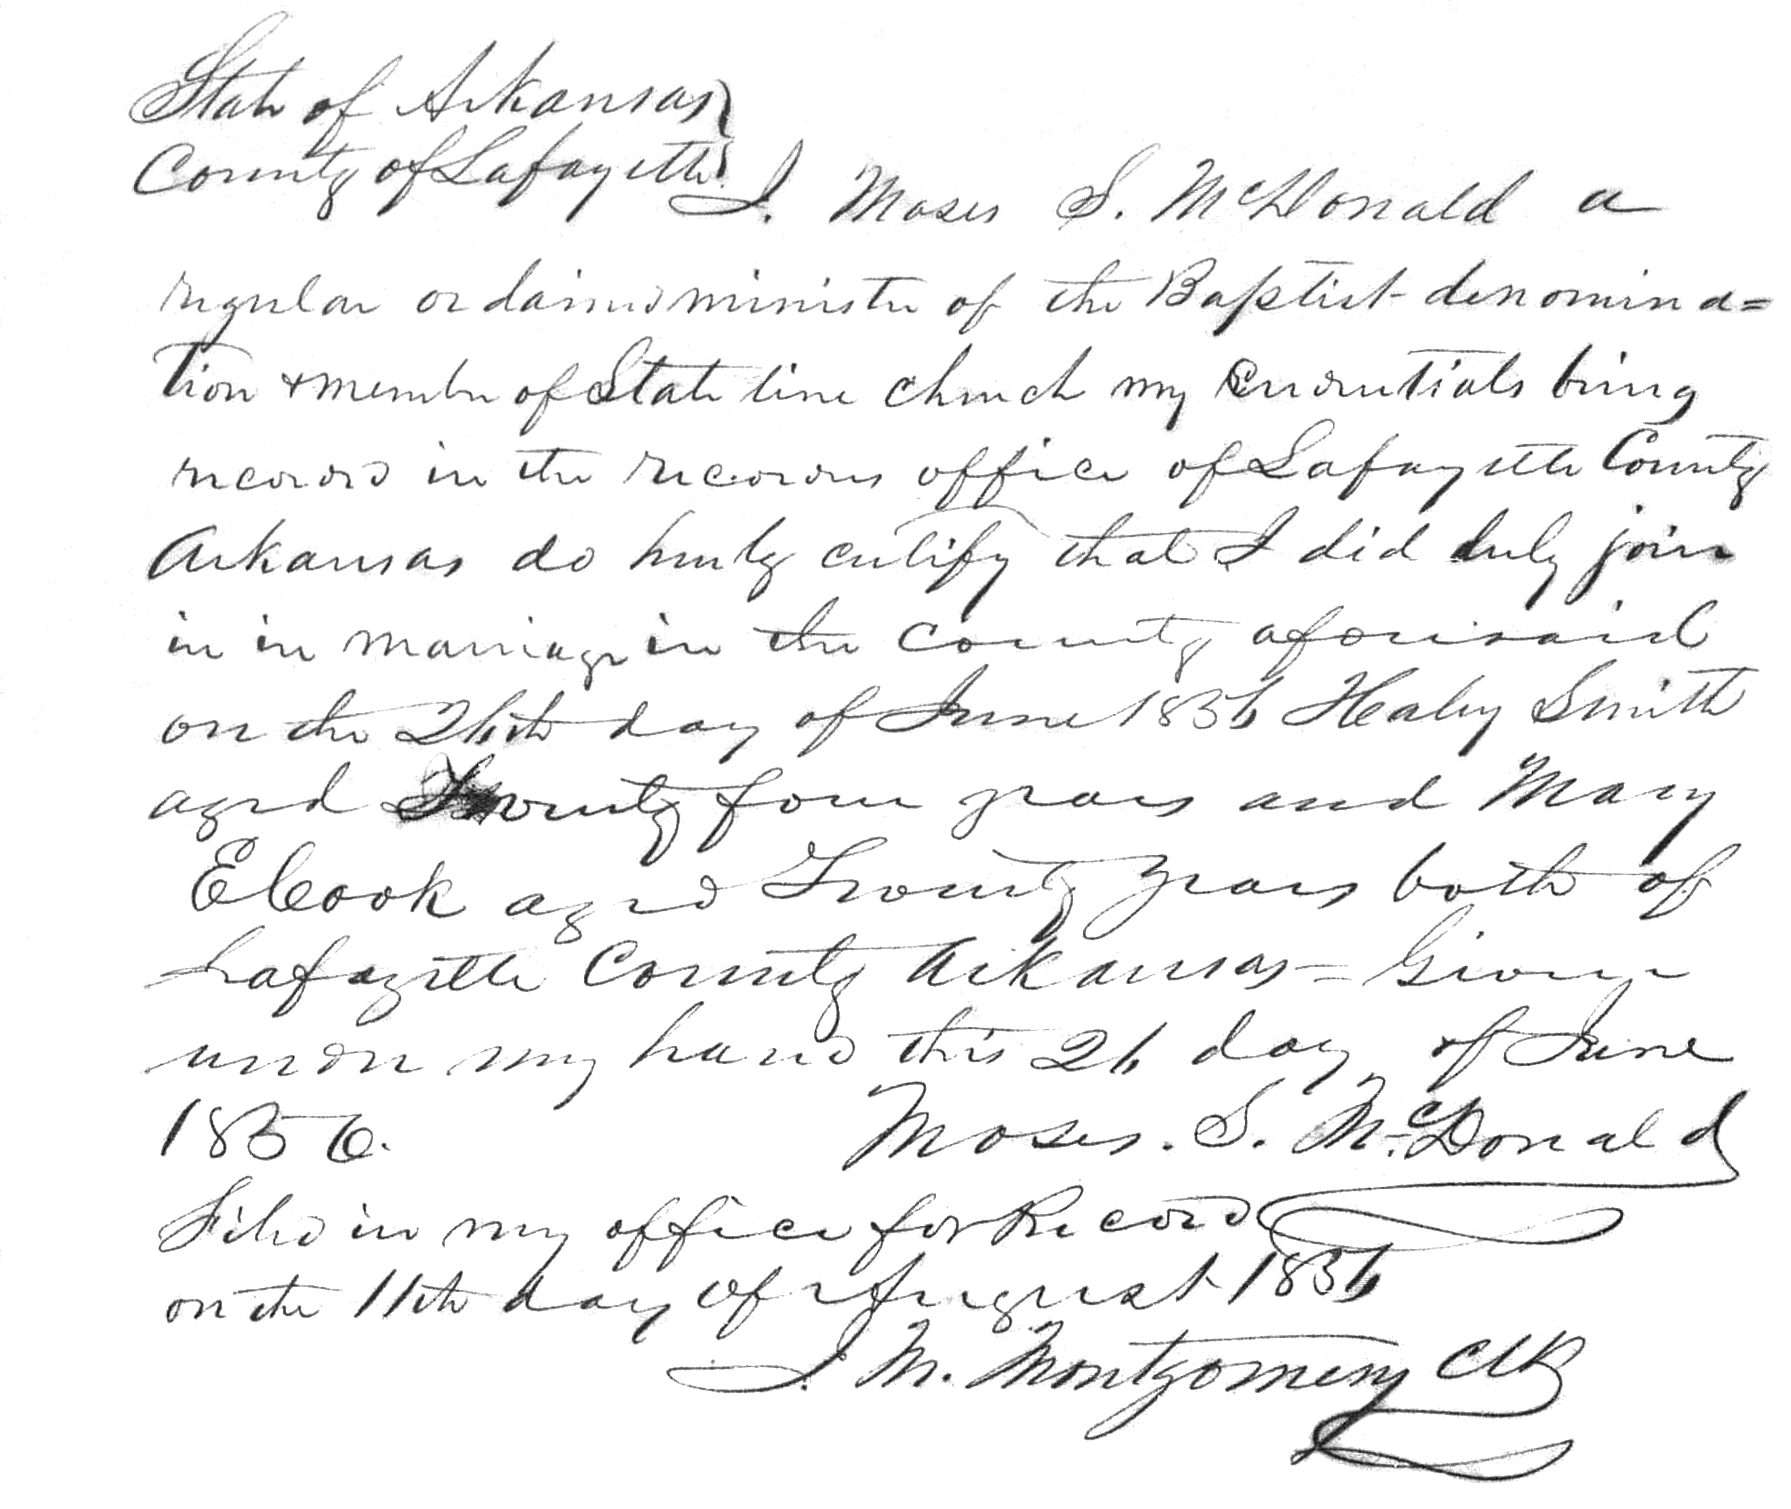 State of Arkansas }
County of Lafayette } I. Moses S. McDonald a
regular ordained minister of the Baptist denomina=
tion & member of State line church my credentials being
record in the records office of Lafayette County
Arkansas do hereby certify that I did duly join
in in marriage in the county aforesaid
on the 26th day of June 1856 Healey Smith
aged Twenty four years and Mary
E Cook aged Twenty years both of
Lafayette County Arkansas = Given
under my hand this 26 day of June
1856. Moses. S. McDonald
Filed in my office for Record
on the 11th day of August 1856
J. M. Montgomery Clk